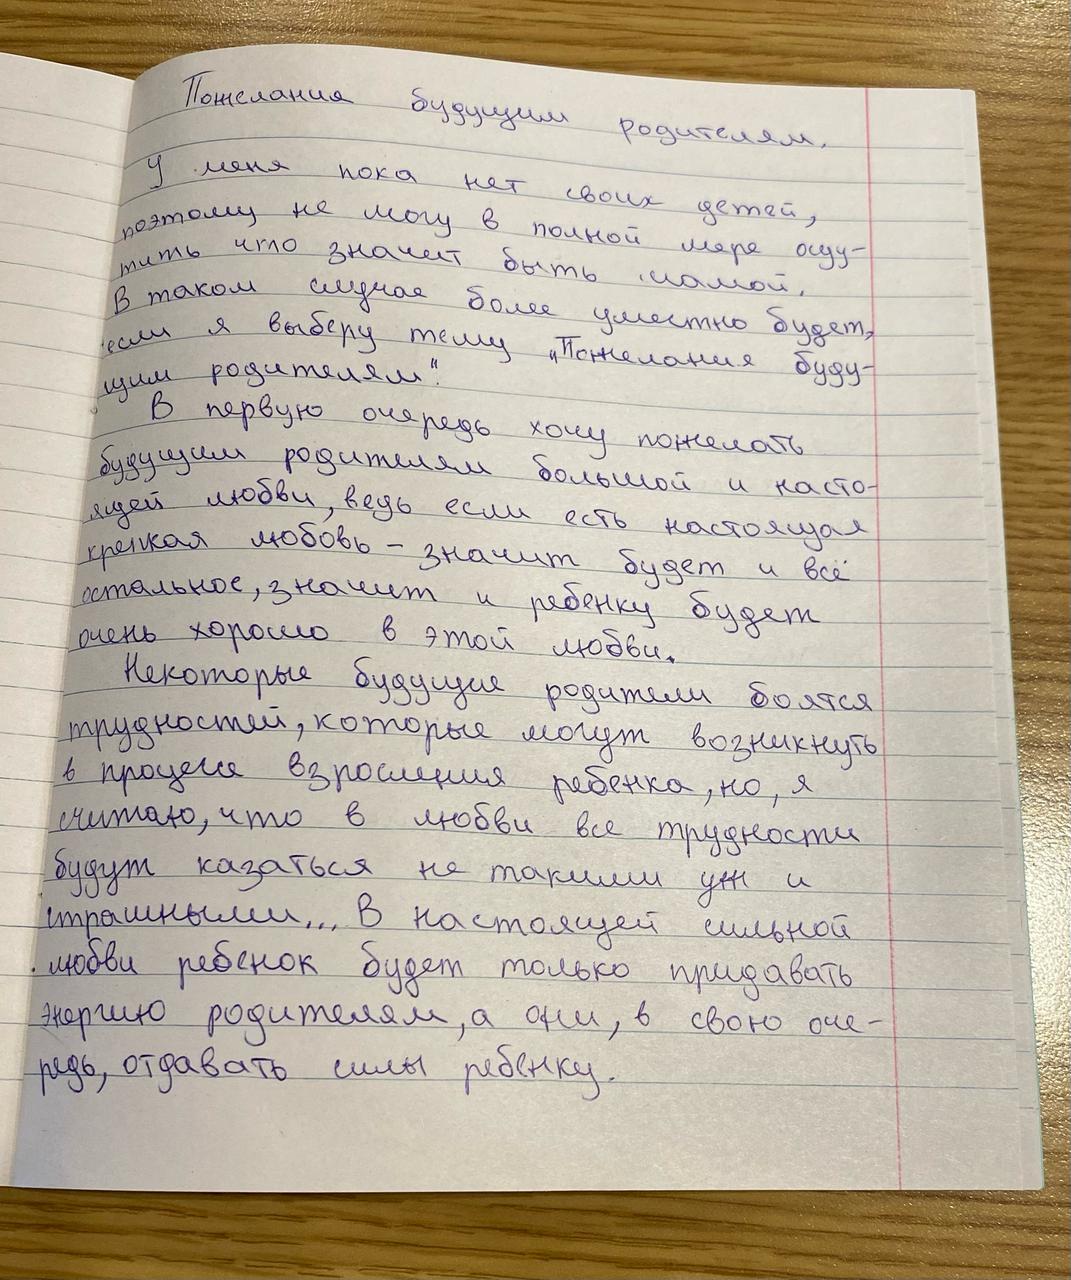 Пожелания будущим родителям.
У меня пока нет своих детей,
поэтому не могу в полной мере ощу-
тить что значит быть мамой.
В таком случае более уместно будет,
если я выберу тему „Пожелания буду-
щим родителям".
В первую очередь хочу пожелать
будущим родителям большой и насто-
ящей любви, ведь если есть настоящая
крепкая любовь - значит будет и всё
остальное, значит и ребенку будет
очень хорошо в этой любви.
Некоторые будущие родители боятся
трудностей, которые могут возникнуть
в процессе взросления ребенка, но, я
считаю, что в любви все трудности
будут казаться не такими уж и
страшными... В настоящей сильной
любви ребенок будет только придавать
энергию родителям, а они, в свою оче-
редь, отдавать силы ребенку.